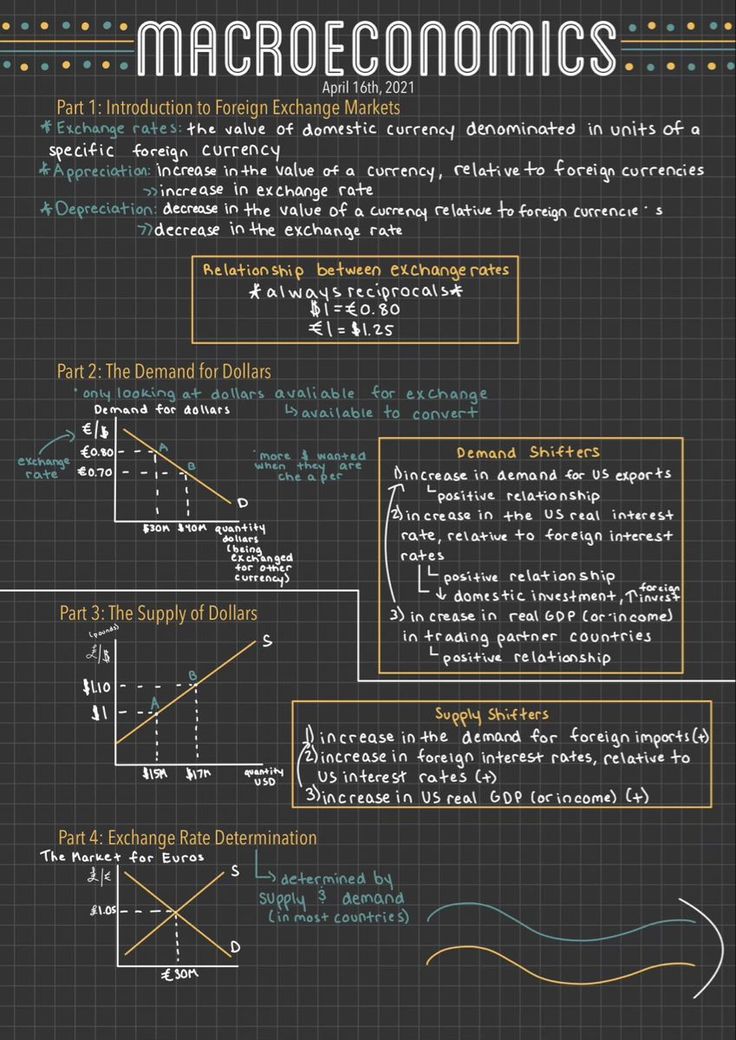 MACROECONOMICS
April 16th, 2021
Part 1: Introduction to Foreign Exchange Markets
*Exchange rates: the value of domestic currency denominated in units of a
specific foreign currency
*Appreciation: increase in the value of a currency, relative to foreign currencies
>> increase in exchange rate
*Depreciation: decrease in the value of a currency relative to foreign currencie s
>> decrease in the exchange rate
Relationship between exchange rates
*always reciprocals*
$1=€0.80
€1=$1.25
Part 2: The Demand for Dollars
• only looking at dollars avaliable for exchange
↳ available to convert
Demand for dollars
€/$
€0.80
€0.70
exchange
rate
A
B
D
$30M $40M quantity
dollars
(being
exchanged
for other
currency)
• more $ wanted
when they are
cheaper
Demand Shifters
1) increase in demand for US exports
positive relationship
2) increase in the US real interest
rate, relative to foreign interest
rates
positive relationship
↓ domestic investment, ↑ foreign
invest
3) increase in real GDP (or income)
in trading partner countries
positive relationship
Part 3: The Supply of Dollars
(pounds)
/$
$1.10
$1
A
B
S
$15M $17M quantity
USD
Supply Shifters
1) increase in the demand for foreign imports (+)
2) increase in foreign interest rates, relative to
US interest rates (+)
3) increase in US real GDP (or income) (+)
Part 4: Exchange Rate Determination
The Market for Euros
/€
£1.05
S
D
€30M
↳ determined by
supply & demand
(in most countries)